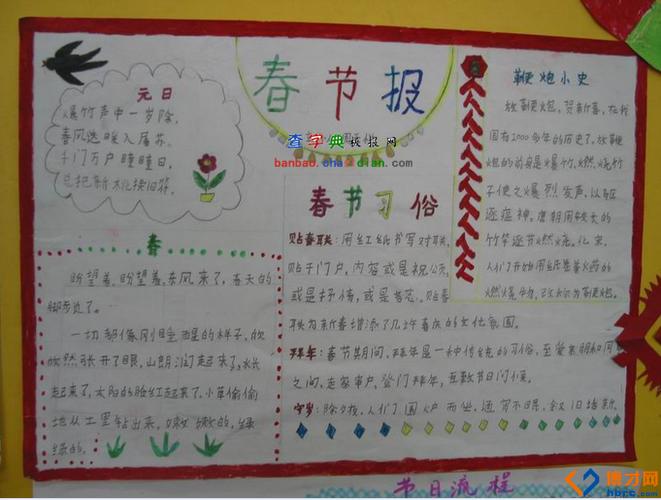 春节报
查字典板报网
banbao.chazidian.com
元日
爆竹声中一岁除,
春风送暖入屠苏.
千门万户曈曈日,
总把新桃换旧符.
春
盼望着,盼望着,东风来了,春天的
脚步近了。
一切都像刚睡醒的样子,欣
欣然张开了眼,山朗润起来了,水长
起来了,太阳的脸红起来了。小草偷偷
地从土里钻出来,嫩嫩的,绿
绿的。
春节习俗
贴春联:用红纸书写对联,
贴于门户,内容或是祝公,
或是抒情,或是 贴春
联为新春增添了几许喜庆的文化氛围。
拜年:春节期间,拜年是一种传统的习俗,至爱亲朋和同
之间,走家串户,登门拜年,互致节日问候。
守岁:除夕夜,人们围炉而坐,通宵不眠,叙旧话新。
鞭炮小史
放鞭炮,贺新春,在我
国有2000多年的历史了。放鞭
炮的前身是爆竹,燃烧竹
子使之爆烈发声,以驱
逐瘟神。唐朝用较长的
竹竿逐节燃烧,北宋,
人们开始用纸卷着火药的
燃烧物,
节日流程
博才网
hbrc.com